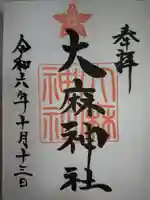 奉拝
大麻神社
令和六年十月十三日